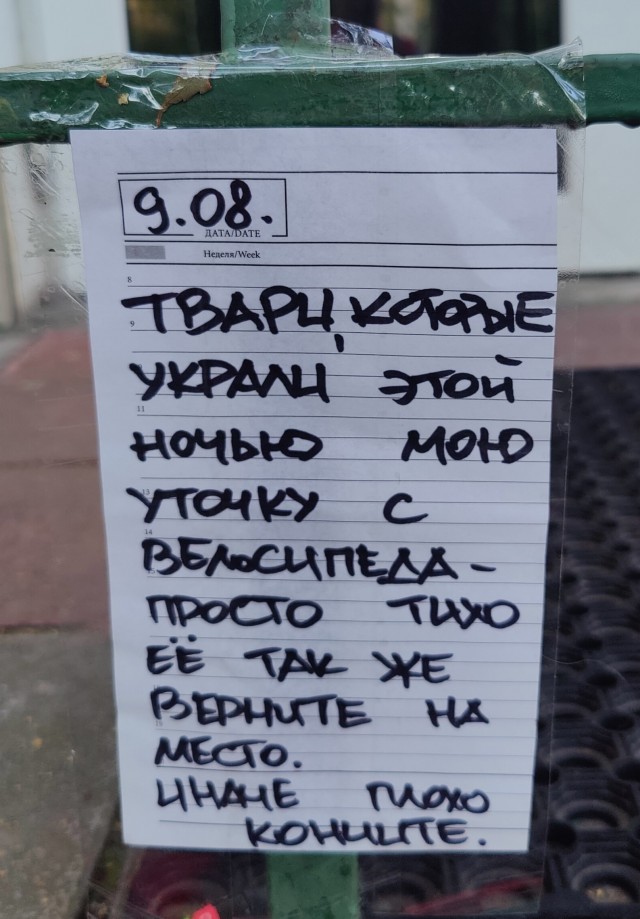 9.08.
ДАТА/DATE
Неделя/Week
8
9
ТВАРИ, КОТОРЫЕ
УКРАЛИ ЭТОЙ
11
НОЧЬЮ МОЮ
13
УТОЧКУ С
14
ВЕЛОСИПЕДА-
ПРОСТО ТИХО
ЕЁ ТАК ЖЕ
ВЕРНИТЕ НА
МЕСТО.
ИНАЧЕ ПЛОХО
КОНЧИТЕ.